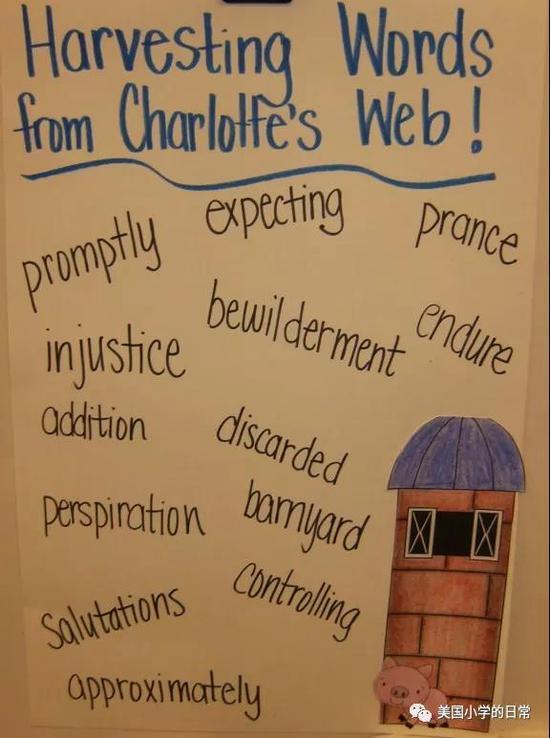 Harvesting Words
from Charlotte's Web!
promptly expecting prance
injustice bewilderment endure
addition discarded
perspiration barnyard
salutations controlling
approximately
美国小学的日常